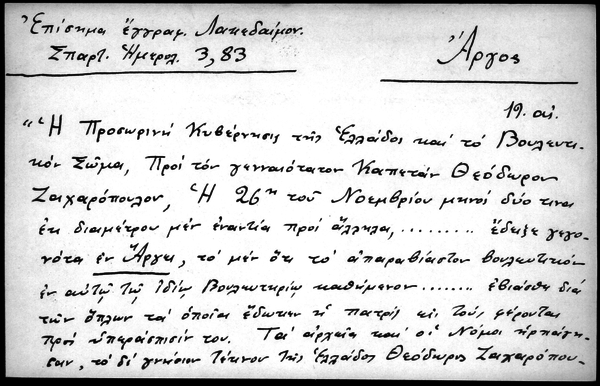 Ἐπίσημα ἔγγραφ. Λακεδαίμον.
Σπαρτ. Ἡμερολ. 3, 83
Ἄργος
19. αἰ.
"Ἡ Προσωρινή Κυβέρνησις τῆς Ἑλλάδος καί τό Βουλευτι-
κόν Σῶμα, Πρός τόν γενναιότατον Καπετάν Θεόδωρον
Ζαχαρόπουλον, Ἡ 26ῃ τοῦ Νοεμβρίου μηνός δύο τινα
ἐκ διαμέτρου μέν ἐναντία πρός ἄλληλα, ......... ἔδειξε γεγο-
νότα ἐν Ἄργει, τό μέν ὅτι τό ἀπαραβίαστον βουλευτικόν
ἐν αὐτῷ τῷ ἰδίῳ Βουλευτηρίῳ καθήμενον ........ ἐβιάσθη διά
τῶν ὅπλων τά ὁποῖα ἔδωκεν ἡ πατρίς εἰς τούς φέροντας
πρός ὑπεράσπισίν του. Τά ἀρχεῖα καί οἱ Νόμοι ἡρπάγη-
σαν, τό δέ γνήσιον τέκνον τῆς Ἑλλάδος Θεόδωρος Ζαχαρόπου-